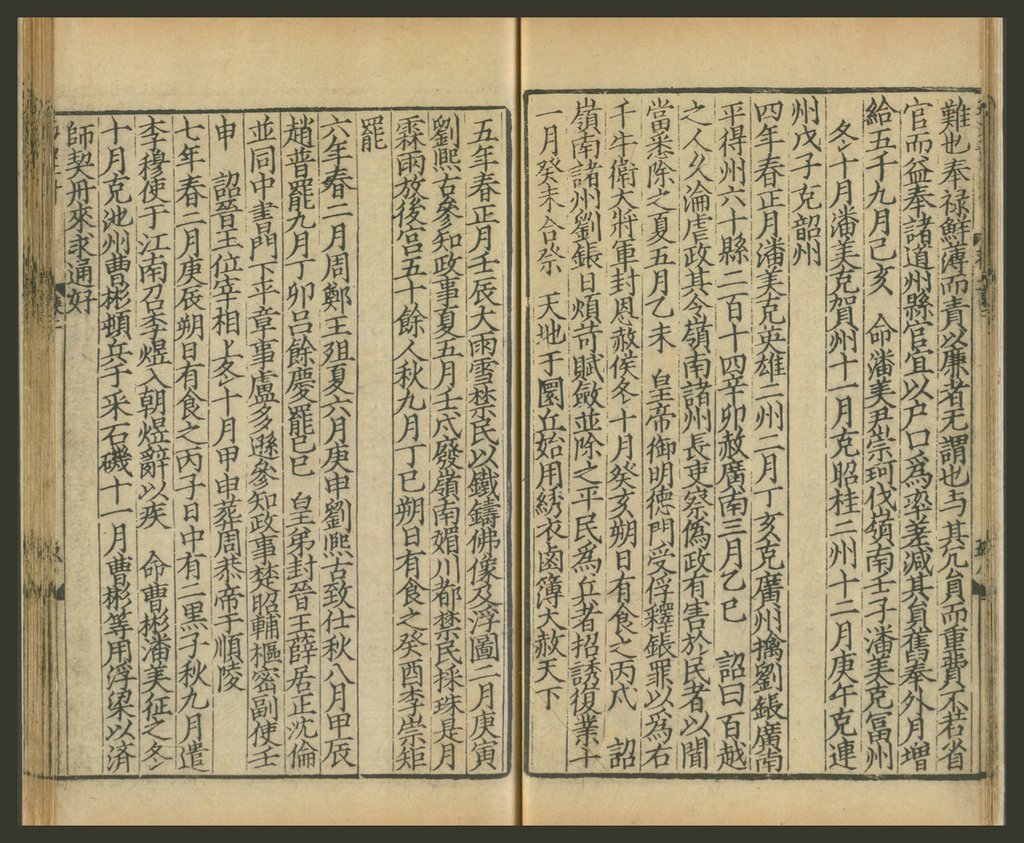 難也奉禄鮮薄而責以廉者无謂也与其冗負而重費不若省
官而益奉諸道州縣官宜以户口爲率差減其負舊奉外月增
給五千九月己亥　命潘美尹崇珂伐嶺南壬子潘美克冨州
冬十月潘美克賀州十一月克昭桂二州十二月庚午克連
州戊子克韶州
四年春正月潘美克英雄二州二月丁亥克廣州擒劉鋹廣南
平得州六十縣二百十四辛卯赦廣南三月乙巳　詔曰百越
之人久淪虐政其令嶺南諸州長吏察僞政有害於民者以聞
當悉除之夏五月乙未　皇帝御明德門受俘釋鋹罪以為右
千牛衛大將軍封恩赦侯冬十月癸亥朔日有食之丙戌　詔
嶺南諸州劉鋹日煩苛賦斂並除之平民為兵者招誘復業十
一月癸未合祭　天地于圜丘始用綉衣鹵簿大赦天下
五年春正月壬辰大雨雪禁民以鐵鑄佛像及浮圖二月庚寅
劉熙古參知政事夏五月壬戌廢嶺南媚川都禁民採珠是月
霖雨放後宮五十餘人秋九月丁巳朔日有食之癸酉李崇矩
罷
六年春二月周鄭王殂夏六月庚申劉熙古致仕秋八月甲辰
趙普罷九月丁卯吕餘慶罷己巳　皇弟封晉王薛居正沈倫
並同中書門下平章事盧多遜參知政事楚昭輔樞密副使壬
申　詔晉王位宰相上冬十月甲申葬周恭帝于順陵
七年春二月庚辰朔日有食之丙子日中有二黑子秋九月遣
李穆使于江南召李煜入朝煜辭以疾　命曹彬潘美征之冬
十月克池州曹彬頓兵于采石磯十一月曹彬等用浮梁以済
師契丹來求通好